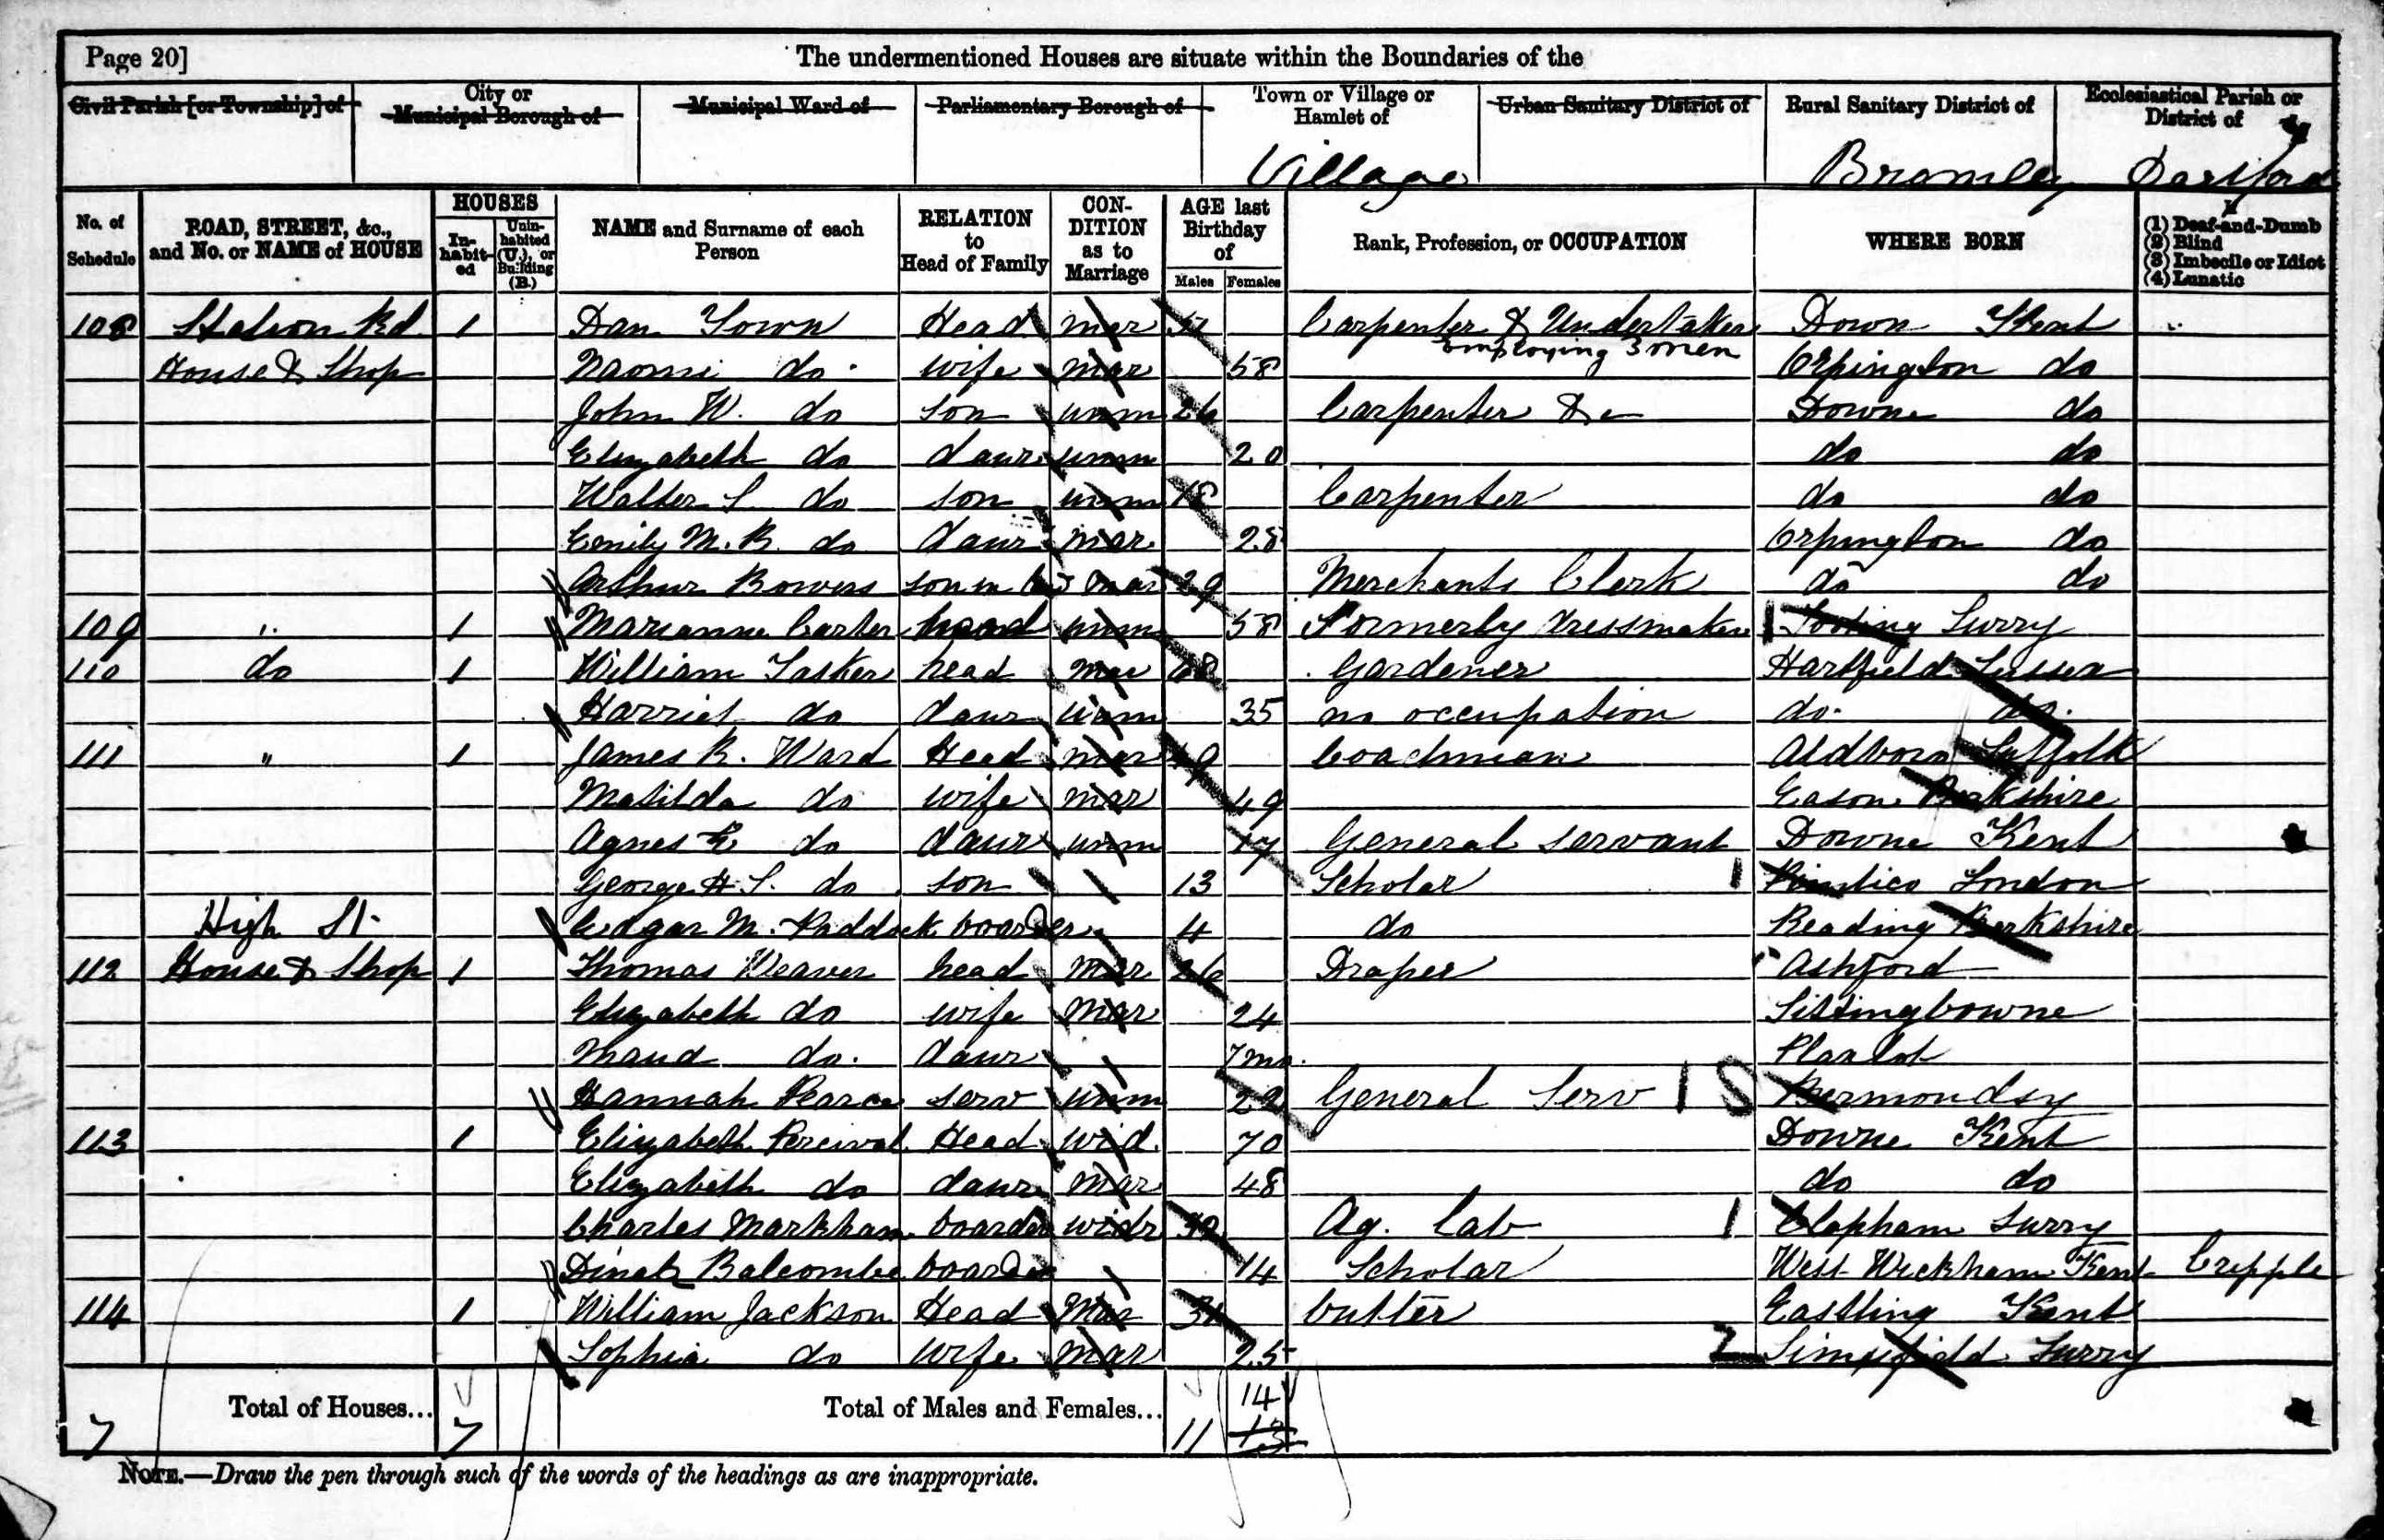 Page 20] The undermentioned Houses are situate within the Boundaries of the
Civil Parish [or Township] of City or Municipal Borough of Municipal Ward of Parliamentary Borough of Town or Village or Hamlet of Urban Sanitary District of Rural Sanitary District of Ecclesiastical Parish or District of
Village Bromley
No. of Schedule ROAD, STREET, &c., and No. or NAME of HOUSE HOUSES In-habit-ed Unin-habited (U.), or Building (B.) NAME and Surname of each Person RELATION to Head of Family CON-DITION as to Marriage AGE last Birthday of Males Females Rank, Profession, or OCCUPATION WHERE BORN (1) Deaf-and-Dumb (2) Blind (3) Imbecile or Idiot (4) Lunatic
108 Station Rd. 1 Dan Town Head mar Carpenter & Undertaker Down Kent
employing 3 men
House & Shop Naomi do wife mar 58 Orpington do
John W. do son unm 26 Carpenter &c Downe do
Elizabeth do daur unm 20 do do
Walter S. do son unm 18 Carpenter do do
Emily M. B. do daur mar 28 Orpington do
Arthur Bowers son in law mar 29 Merchants Clerk do do
109 " 1 Marianne Carter head unm 58 Formerly dressmaker Tooting Surry
110 do 1 William Tasker head mar 68 Gardener Hartfield Sussex
Harriet do daur unm 35 no occupation do. do.
111 " 1 James R. Ward Head mar 49 Coachman Aldboro Suffolk
Matilda do wife mar 49 Eason Berkshire
Agnes E do daur unm 17 General servant Downe Kent
George H. S. do son 13 Scholar 1 Pimlico London
High St. Edgar M. Paddock boarder 4 do Reading Berkshire
112 House & Shop 1 Thomas Weaver head mar 26 Draper Ashford
Elizabeth do wife mar 24 Sittingbowne
Maud do. daur 7 mo. Plaxtol
Hannah Pearce serv unm 22 General Serv 1 S Bermondsy
113 1 Elizabeth Percival Head wid. 70 Downe Kent
Elizabeth do daur mar 48 do do
Charles Markham boarder widr Ag. Lab 1 Clapham Surry
Dinah Balcombe boarder 14 Scholar West Wickham Kent Cripple
114 1 William Jackson Head Mar 31 butler Eastling Kent
Sophia do wife mar 25 2 Limpsfield Surry
Total of Houses... 7 7 Total of Males and Females... 11 14 13
NOTE.—Draw the pen through such of the words of the headings as are inappropriate.